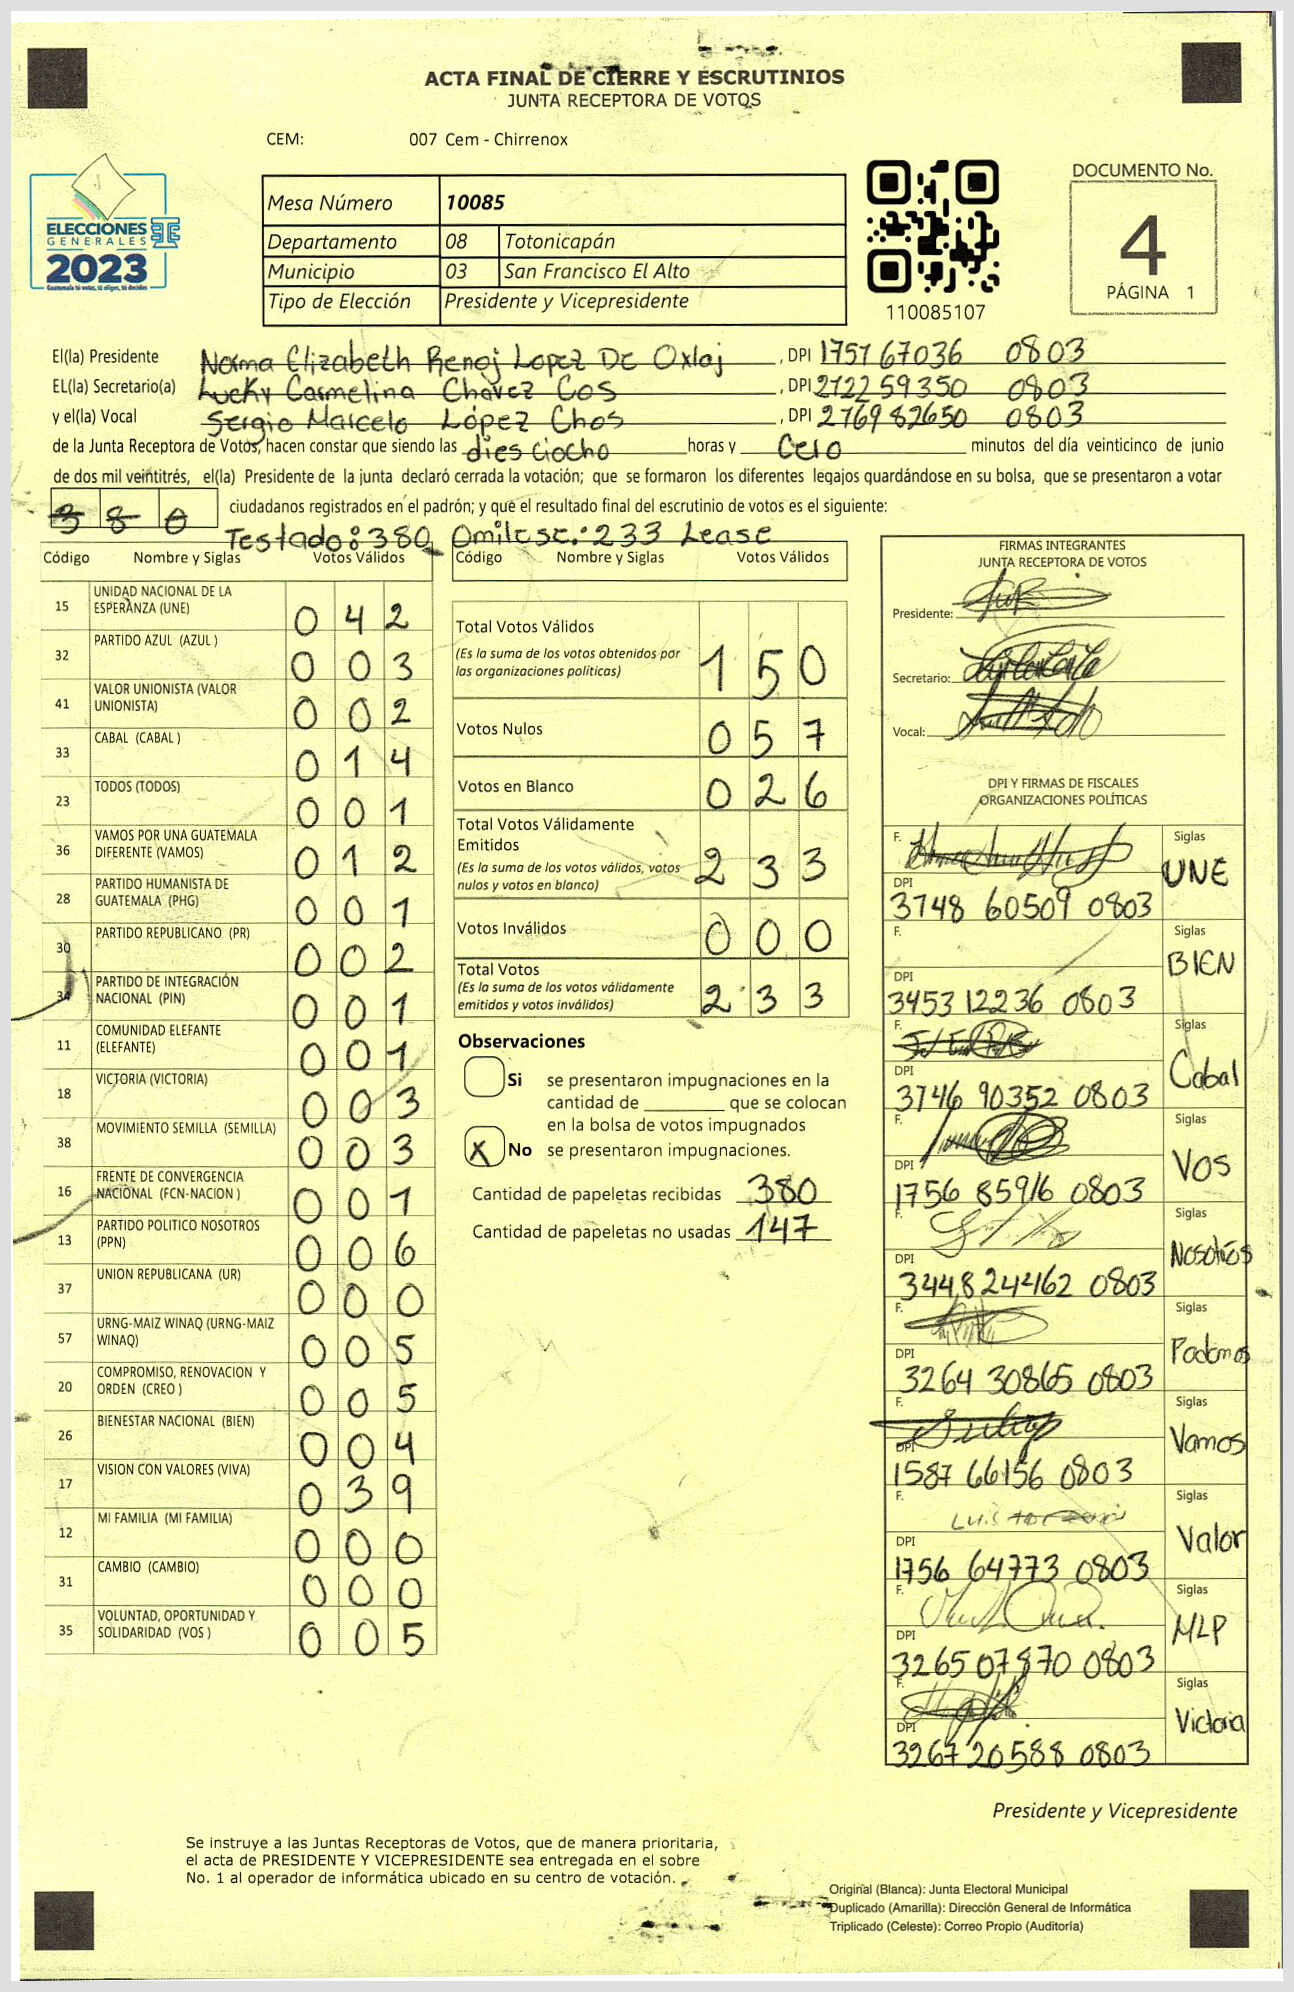 ACTA FINAL DE CIERRE Y ESCRUTINIOS
JUNTA RECEPTORA DE VOTOS
CEM: 007 Cem - Chirrenox
ELECCIONES
GENERALES
2023
Guatemala tú votas, tú eliges, tú decides
Mesa Número 10085
Departamento 08 Totonicapán
Municipio 03 San Francisco El Alto
Tipo de Elección Presidente y Vicepresidente
110085107
DOCUMENTO No.
4
PÁGINA 1
El(la) Presidente Norma Elizabeth Renoj Lopez De Oxlaj , DPI 1757 67036 0803
EL(la) Secretario(a) Lucky Carmelina Chavez Cos , DPI 2722 59350 0803
y el(la) Vocal Sergio Marcelo López Chos , DPI 2769 82650 0803
de la Junta Receptora de Votos, hacen constar que siendo las dies ciocho horas y Cero minutos del día veinticinco de junio
de dos mil veintitrés, el(la) Presidente de la junta declaró cerrada la votación; que se formaron los diferentes legajos guardándose en su bolsa, que se presentaron a votar
3 8 0 ciudadanos registrados en el padrón; y que el resultado final del escrutinio de votos es el siguiente:
Testado: 380 Omitese: 233 Lease
Código Nombre y Siglas Votos Válidos
15 UNIDAD NACIONAL DE LA
ESPERANZA (UNE) 0 4 2
32 PARTIDO AZUL (AZUL ) 0 0 3
41 VALOR UNIONISTA (VALOR
UNIONISTA) 0 0 2
33 CABAL (CABAL ) 0 1 4
23 TODOS (TODOS) 0 0 1
36 VAMOS POR UNA GUATEMALA
DIFERENTE (VAMOS) 0 1 2
28 PARTIDO HUMANISTA DE
GUATEMALA (PHG) 0 0 1
30 PARTIDO REPUBLICANO (PR) 0 0 2
34 PARTIDO DE INTEGRACIÓN
NACIONAL (PIN) 0 0 1
11 COMUNIDAD ELEFANTE
(ELEFANTE) 0 0 1
18 VICTORIA (VICTORIA) 0 0 3
38 MOVIMIENTO SEMILLA (SEMILLA) 0 0 3
16 FRENTE DE CONVERGENCIA
NACIONAL (FCN-NACION ) 0 0 1
13 PARTIDO POLITICO NOSOTROS
(PPN) 0 0 6
37 UNION REPUBLICANA (UR) 0 0 0
57 URNG-MAIZ WINAQ (URNG-MAIZ
WINAQ) 0 0 5
20 COMPROMISO, RENOVACION Y
ORDEN (CREO ) 0 0 5
26 BIENESTAR NACIONAL (BIEN) 0 0 4
17 VISION CON VALORES (VIVA) 0 3 9
12 MI FAMILIA (MI FAMILIA) 0 0 0
31 CAMBIO (CAMBIO) 0 0 0
35 VOLUNTAD, OPORTUNIDAD Y
SOLIDARIDAD (VOS ) 0 0 5
Código Nombre y Siglas Votos Válidos
Total Votos Válidos
(Es la suma de los votos obtenidos por
las organizaciones políticas) 1 5 0
Votos Nulos 0 5 7
Votos en Blanco 0 2 6
Total Votos Válidamente
Emitidos
(Es la suma de los votos válidos, votos
nulos y votos en blanco) 2 3 3
Votos Inválidos 0 0 0
Total Votos
(Es la suma de los votos válidamente
emitidos y votos inválidos) 2 3 3
Observaciones
Si se presentaron impugnaciones en la
cantidad de ________ que se colocan
en la bolsa de votos impugnados
X No se presentaron impugnaciones.
Cantidad de papeletas recibidas 380
Cantidad de papeletas no usadas 147
FIRMAS INTEGRANTES
JUNTA RECEPTORA DE VOTOS
Presidente:
Secretario:
Vocal:
DPI Y FIRMAS DE FISCALES
ORGANIZACIONES POLÍTICAS
F. Siglas
UNE
DPI
3748 60509 0803
F. Siglas
BIEN
DPI
3453 12236 0803
F. Siglas
Cabal
DPI
3746 90352 0803
F. Siglas
VOS
DPI
1756 85916 0803
F. Siglas
Nosotros
DPI
3448 24462 0803
F. Siglas
Podemos
DPI
3264 30865 0803
F. Siglas
Vamos
DPI
1587 66156 0803
F. Luis Siglas
Valor
DPI
1756 64773 0803
F. Siglas
MLP
DPI
3265 07870 0803
F. Siglas
Victoria
DPI
3267 20588 0803
Presidente y Vicepresidente
Se instruye a las Juntas Receptoras de Votos, que de manera prioritaria,
el acta de PRESIDENTE Y VICEPRESIDENTE sea entregada en el sobre
No. 1 al operador de informática ubicado en su centro de votación.
Original (Blanca): Junta Electoral Municipal
Duplicado (Amarilla): Dirección General de Informática
Triplicado (Celeste): Correo Propio (Auditoría)